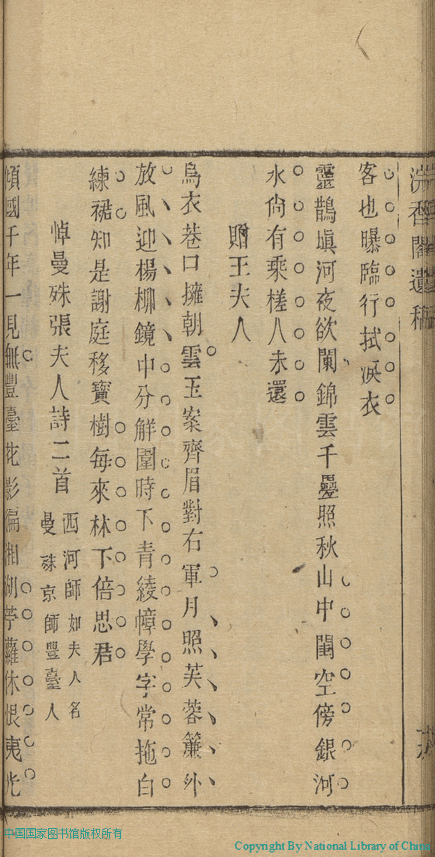 香閣遺稿
客也曝臨行拭淚衣
靈鵲填河夜欲闌錦雲千疊照秋山中閨空傍銀河
水尙有乘槎人未還
贈王夫人
烏衣巷口擁朝雲玉案齊眉對右軍月照芙蓉簾外
放風迎楊柳鏡中分解圍時下青綾幛學字常拖白
練裙知是謝庭移寶樹每來林下倍思君
悼曼殊張夫人詩二首
西河師如夫人名
曼殊京師豐臺人
傾國千年一見無豐臺花影偏相湖苧蘿休恨夷光
中国国家图书馆版权所有
Copyright By National Library of China